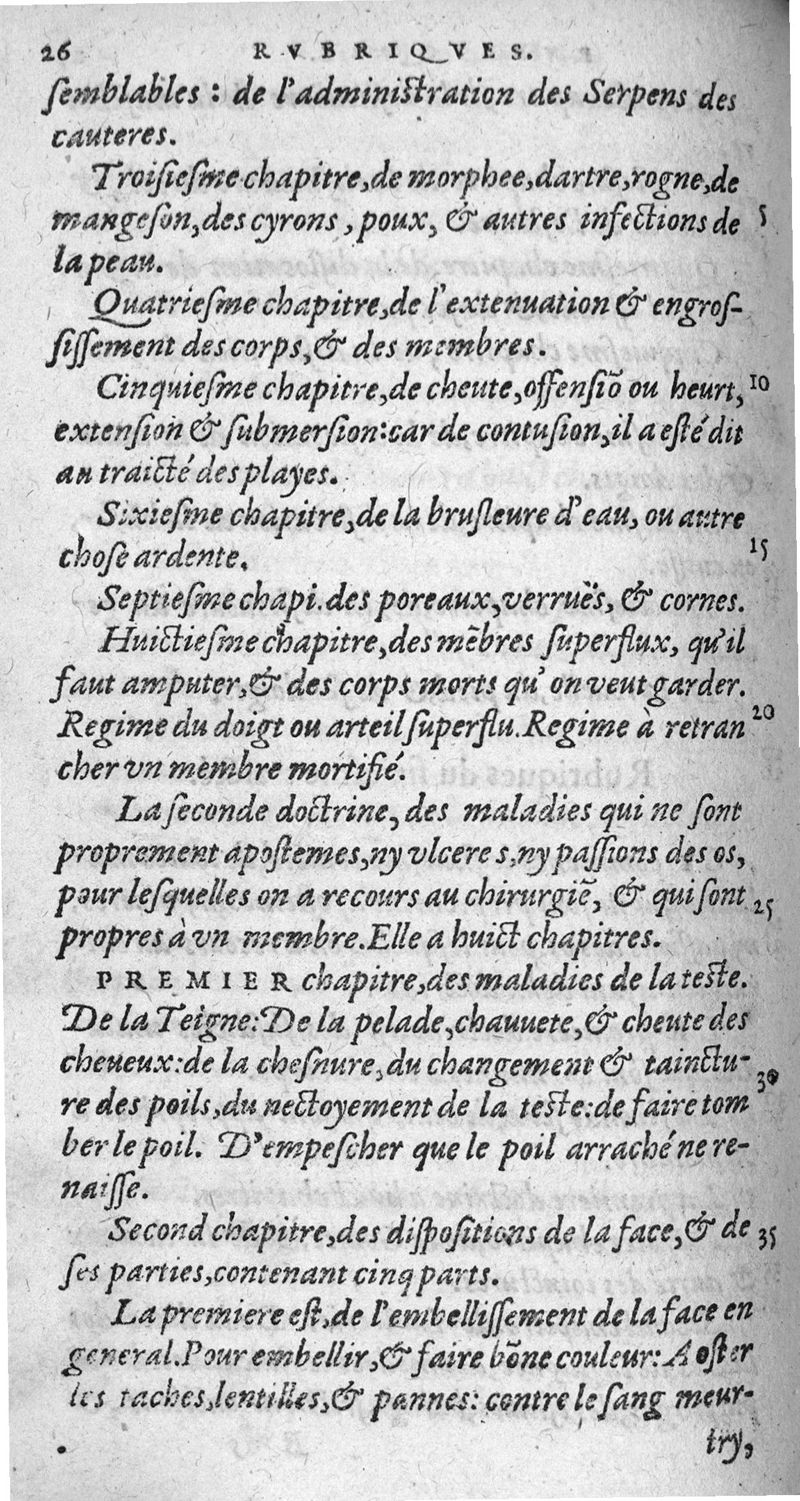 26 RVBRIQVES.
ſemblables : de l'adminiſtration des Serpens des
cauteres.
Troiſieſme chapitre,de morphee,dartre,rogne,de
mangeſon,des cyrons, poux, & autres infections de 5
la peau.
Quatrieſme chapitre,de l'extenuation & engroſ-
ſiſſement des corps,& des membres.
Cinquieſme chapitre,de cheute,offenſiõ ou heurt, 10
extenſion & ſubmerſion:car de contuſion,il a eſté dit
au traicté des playes.
Sixieſme chapitre,de la bruſleure d'eau, ou autre
choſe ardente. 15
Septieſme chapi.des poreaux,verruës, & cornes.
Huictieſme chapitre,des mẽbres ſuperflux, qu'il
faut amputer,& des corps morts qu'on veut garder.
Regime du doigt ou arteil ſuperflu.Regime à retran 20
cher vn membre mortifié.
La ſeconde doctrine, des maladies qui ne ſont
proprement apoſtemes,ny vlceres,ny paſſions des os,
pour leſquelles on a recours au chirurgiẽ, & qui ſont 25
propres à vn membre.Elle a huict chapitres.
PREMIER chapitre,des maladies de la teſte.
De la Teigne:De la pelade,chauuete,& cheute des
cheueux:de la cheſnure,du changement & tainctu- 30
re des poils,du nectoyement de la teſte:de faire tom
ber le poil. D'empeſcher que le poil arraché ne re-
naiſſe.
Second chapitre,des diſpoſitions de la face,& de 35
ſes parties,contenant cinq parts.
La premiere eſt,de l'embelliſſement de la face en
general.Pour embellir,& faire bõne couleur:A oſter
les taches,lentilles,& pannes: contre le ſang meur-
try,